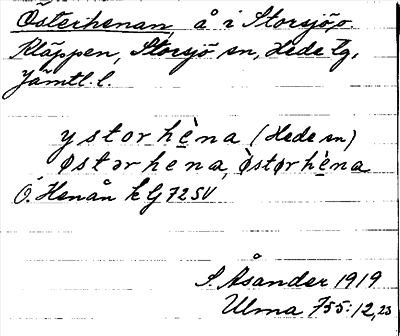 Österhenan, å i Storsjö, o.
Kläppen, Storsjö sn, Hede tg,
Jämtl. l.
ystorhèna (Hede sn)
østərhena, òstørhèna
Ö. Henån k G 72 SV
S. Åsander 1919
Ulma 755:12,23